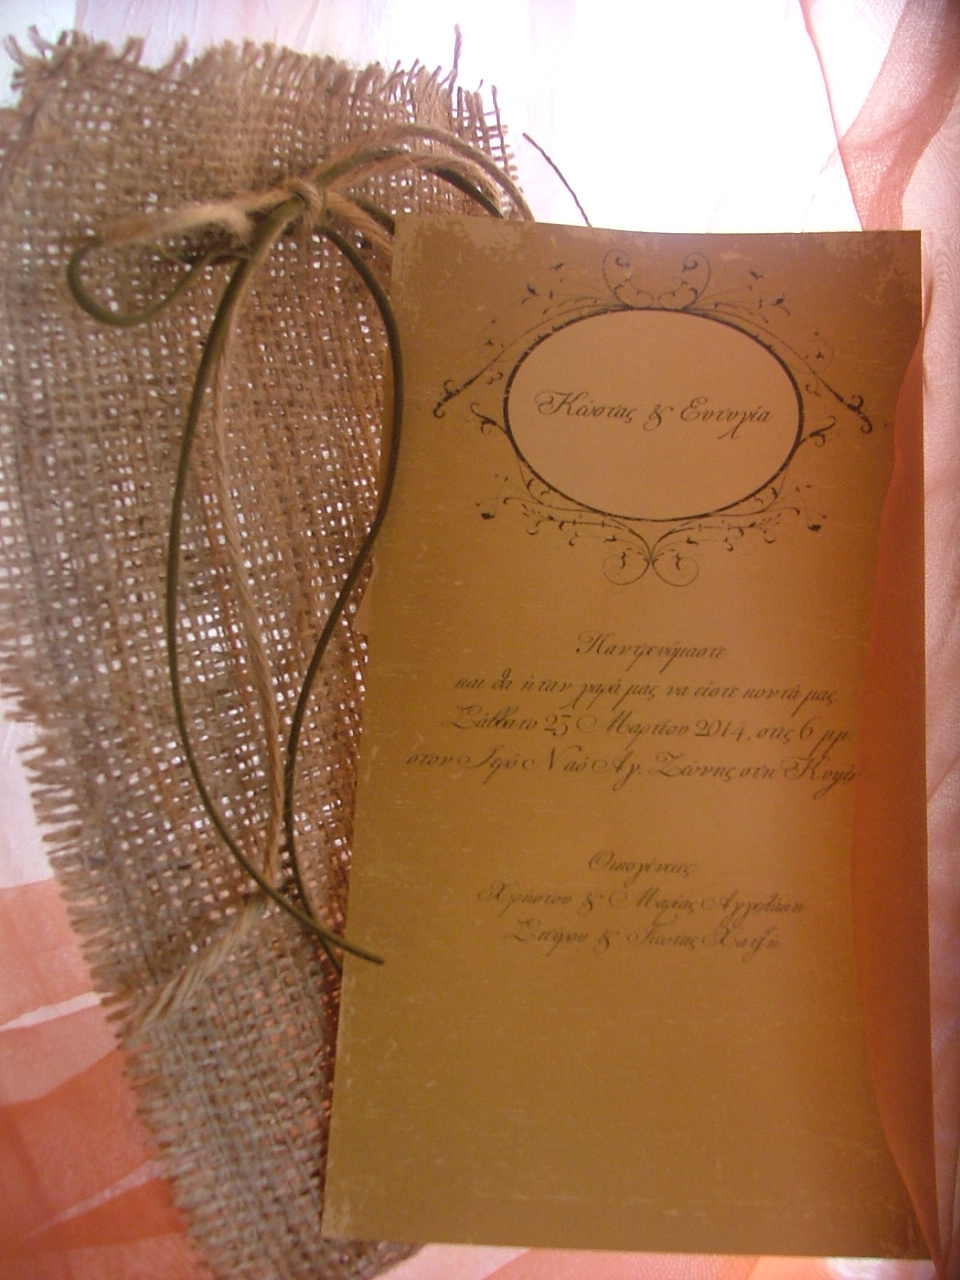 Κώστας & Ευτυχία
Παντρευόμαστε
και θα ήταν χαρά μας να είστε κοντά μας
Σάββατο 25 Μαρτίου 2014, στις 6 μμ.
στον Ιερό Ναό Αγ. Ζώνης στη
Οικογένειες
Χρήστου & Μαρίας Αγγελάκη
Σπύρου & Χατζή